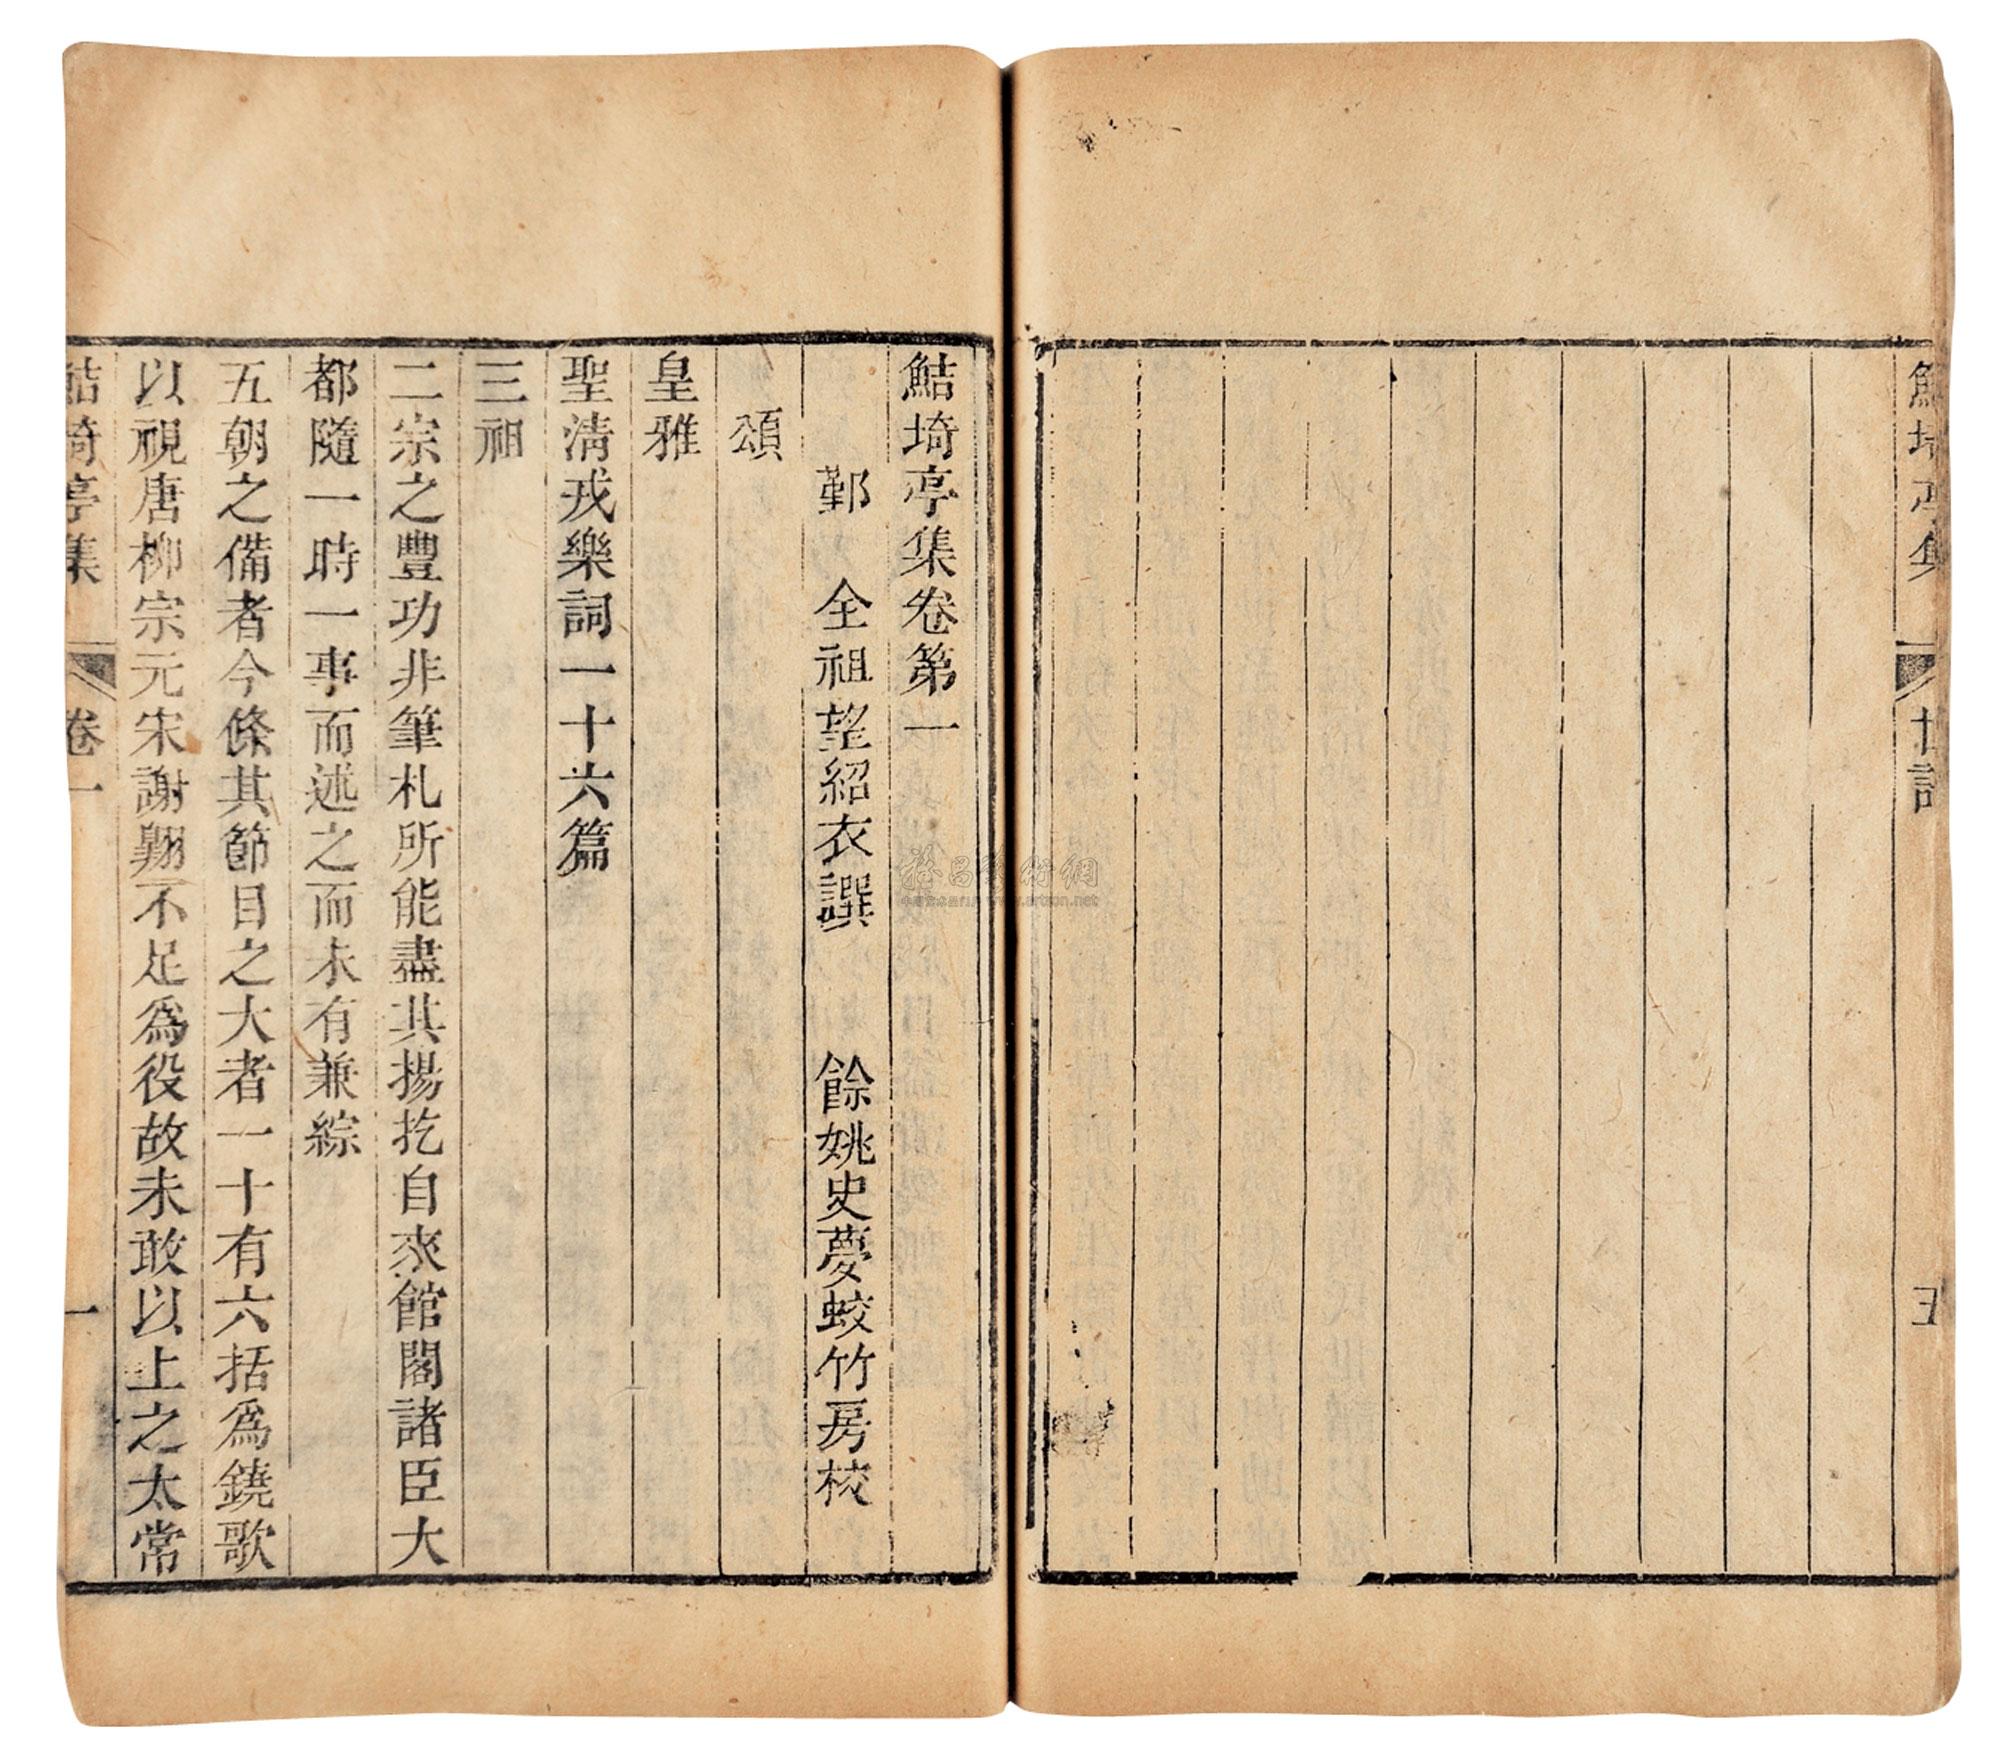 鮚埼亭集
世譜
五
鮚埼亭集卷第一
鄞 全祖望紹衣譔 餘姚史夢蛟竹房校
頌
皇雅
聖清戎樂詞一十六篇
三祖
二宗之豐功非筆札所能盡其揚扢自來館閣諸臣大
都隨一時一事而述之而未有兼綜
五朝之備者今條其節目之大者一十有六括爲鐃歌
以視唐柳宗元宋謝翱不足爲役故未敢以上之太常
鮚埼亭集
卷一
一